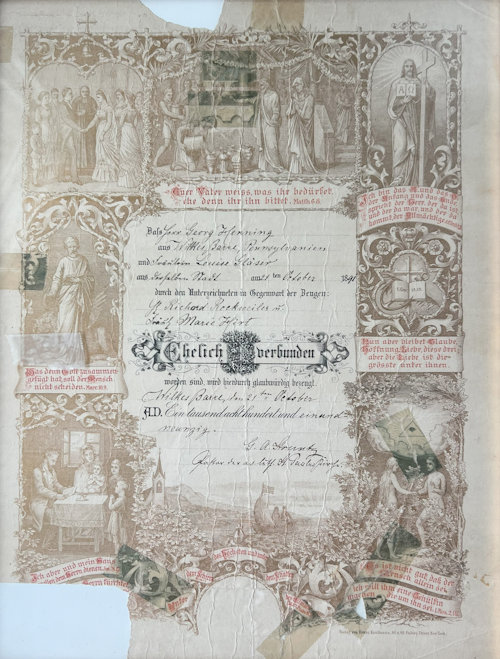 Euer Vater weiss, was ihr bedürfet,
ehe denn ihr ihn bittet. Matth. 6.8.
A Ω
Ich bin das A und das O,
der Anfang und das Ende,
spricht der Herr, der da ist
und der da war und der da
kommt der Allmächtige.
Daß Herr Georg Henning
aus Wilkes Barre, Pennsylvanien
und Fräulein Louise Gläser
aus derselben Stadt am 21ten October 1891
durch den Unterzeichneten in Gegenwart der Zeugen:
Richard Rockweiler u.
Marie Hirt
Ehelich verbunden
worden sind, wird hierdurch glaubwürdig bezeugt.
Wilkes Barre, den 21ten October
A.D. Ein tausend acht hundert und ein und
neunzig.
Pastor der
Was denn Gott zusammen-
gefügt hat, soll der Mensch
nicht scheiden. Marc. 10.9.
Nun aber bleibet Glaube,
Hoffnung, Liebe, diese drei;
aber die Liebe ist die
grösste unter ihnen.
Ich aber und mein Haus
wollen dem Herrn dienen.
Es ist nicht gut, dass der
Mensch allein sei,
ich will ihm eine Gehülfin
machen, die um ihn sei.